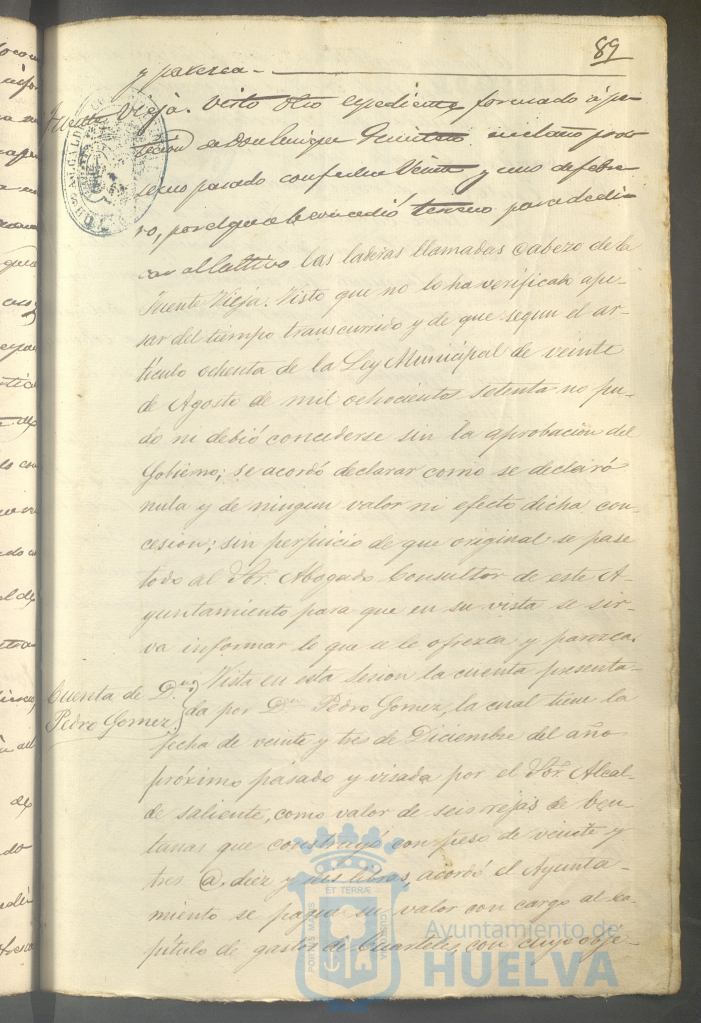 89
y parezca.
Fuente Vieja. Visto otro espediente, formado á pe-
ticion de Don Enrique
secuo pasado con fecha Veinte y uno de febre-
ro, por el que se le concedió terreno para dedi-
car al cultivo las laderas llamadas Cabezo de la
Fuente Vieja. Visto que no lo ha verificado ape-
sar del tiempo transcurrido y de que segun el ar-
tículo ochenta de la Ley Municipal de veinte
de Agosto de mil ochocientos setenta no pu-
do ni debió concederse sin la aprobacion del
Gobierno; se acordó declarar como se declaró
nula y de ningun valor ni efecto dicha con-
cesion; sin perjuicio de que original se pase
todo al Sor. Abogado Consultor de este A-
yuntamiento para que en su vista se sir-
va informar lo que se le ofrezca y parezca.
Cuenta de D.n
Pedro Gomez
Vista en esta sesion la cuenta presenta-
da por Don Pedro Gomez, la cual tiene la
fecha de veinte y tres de Diciembre del año
próximo pasado y visada por el Sor. Alcal-
de saliente, como valor de seis rejas de ben-
tanas que construyó con peso de veinte y
tres @. diez y seis libras, acordó el Ayunta-
miento se pague su valor con cargo al ca-
pítulo de gastos de Cuarteles, con cuyo obje-
ET TERRÆ
PORTUS MARIS
CUSTODIA
Ayuntamiento de
HUELVA